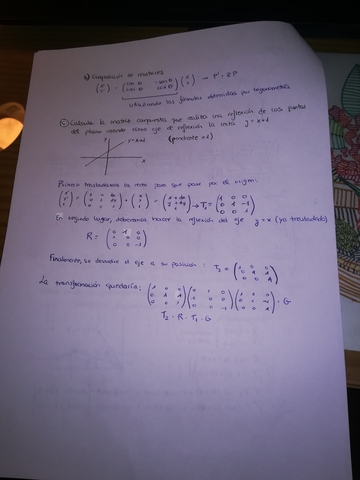 b) Composición de matrices
(x' y') = (cos θ -sen θ sen θ cos θ) (x y) → P' = RP
utilizando las fórmulas obtenidas por trigonometría
C) Calcula la matriz compuesta que realiza una reflexión de los puntos
del plano usando como eje de reflexión la recta y = x+1
(pendiente =1)
y
y=x+1
x
Primero trasladamos la recta para que pase por el origen:
→ T₁ = (1 0 0 0 1 -1 0 0 1)
En segundo lugar, deberemos hacer la reflexión del eje y=x (ya trasladado)
R = (0 1 0 1 0 0 0 0 -1)
Finalmente, se devuelve el eje a su posición : T₂ = (1 0 0 0 1 1 0 0 1)
La transformación quedaría: (1 0 0 0 1 1 0 0 1) (0 1 0 1 0 0 0 0 -1) (1 0 0 0 1 -1 0 0 1) · G
T₂ · R · T₁ · G